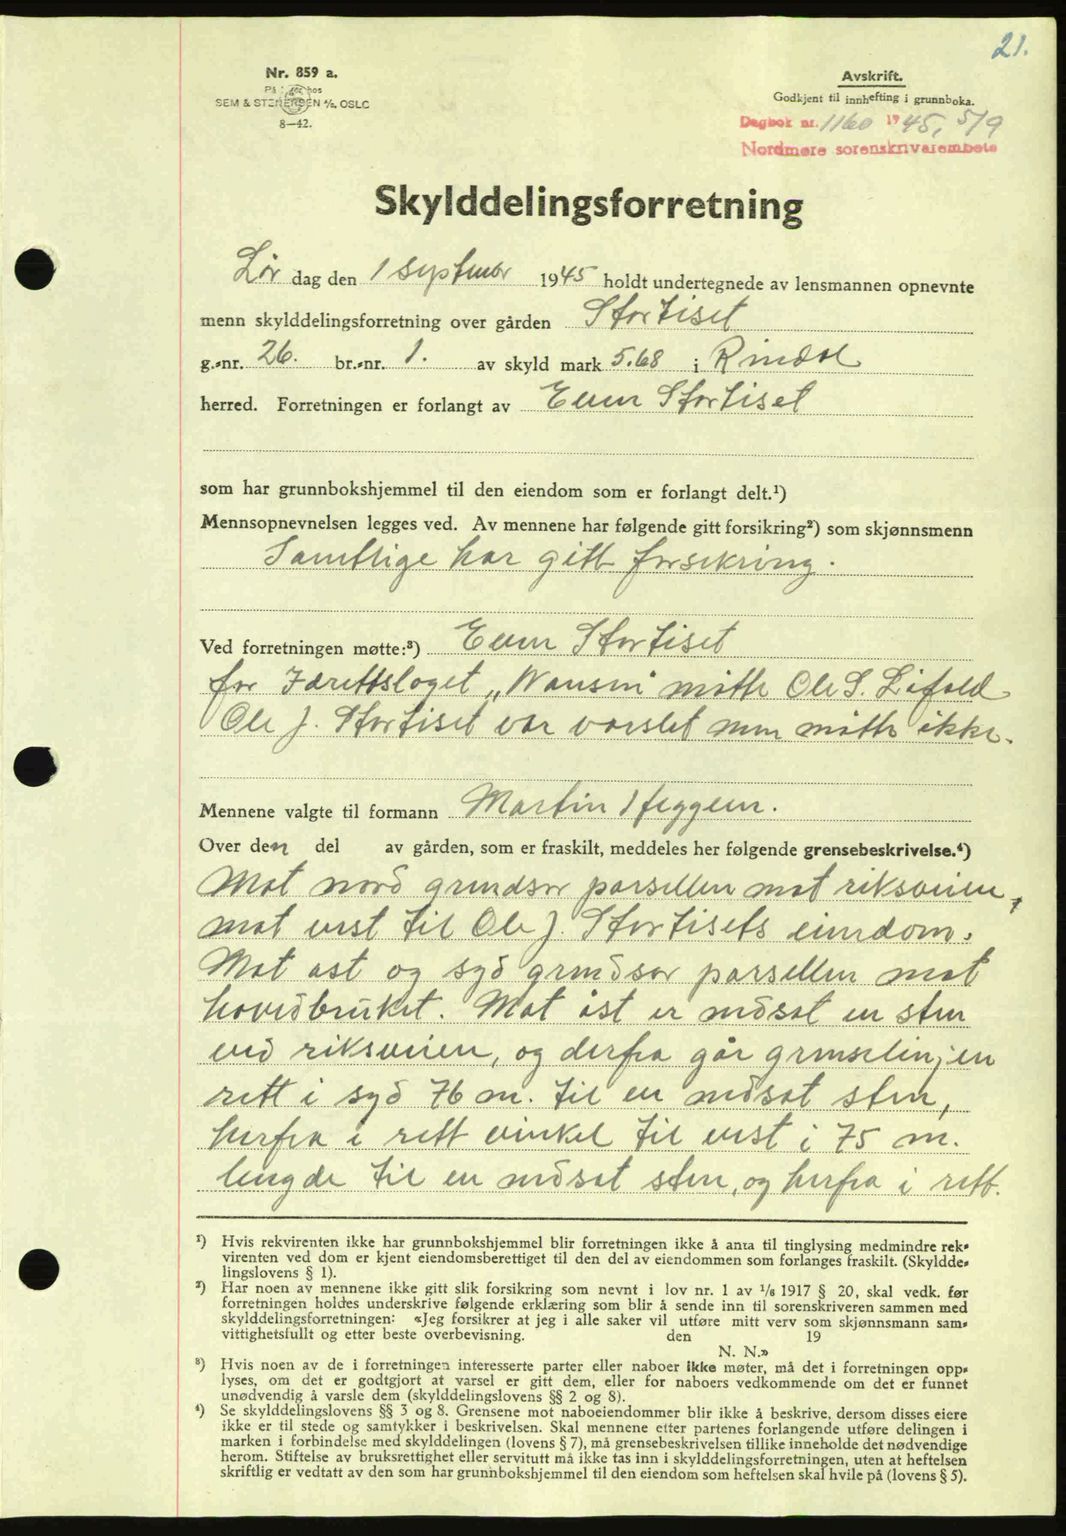 21.
Nr. 859 a.
SEM & STENERSEN A/S, OSLO
8—42.
Avskrift.
Godkjent til innhefting i grunnboka.
Dagbok nr. 1160 1945, 5/9
Nordmøre sorenskriverembete
Skylddelingsforretning
Lør dag den 1 september 1945 holdt undertegnede av lensmannen opnevnte
menn skylddelingsforretning over gården Stortiset
g.-nr. 26. br.-nr. 1. av skyld mark 5.68 i Rindal
herred. Forretningen er forlangt av Even Stortiset
som har grunnbokshjemmel til den eiendom som er forlangt delt.¹)
Mennsopnevnelsen legges ved. Av mennene har følgende gitt forsikring²) som skjønnsmenn
Samtlige har gitt forsikring.
Ved forretningen møtte:³) Even Stortiset
for Idrettslaget „Nansen" møtte Ole S. Løfald
Ole J. Stortiset var varslet men møtte ikke.
Mennene valgte til formann Martin Heggem.
Over den del av gården, som er fraskilt, meddeles her følgende grensebeskrivelse.⁴)
Mot nord grendser parsellen mot riksveien,
mot vest til Ole J. Stortisets eiendom.
Mot øst og syd grendser parsellen mot
hovedbruket. Mot øst er nedsat en sten
ved riksveien, og derfra går grenselinjen
rett i syd 76 m. til en nedsat sten,
herfra i rett vinkel til vest i 75 m.
lengde til en nedsat sten, og herfra i rett.
¹) Hvis rekvirenten ikke har grunnbokshjemmel blir forretningen ikke å anta til tinglysing medmindre rek-
virenten ved dom er kjent eiendomsberettiget til den del av eiendommen som forlanges fraskilt. (Skyldde-
lingslovens § 1).
²) Har noen av mennene ikke gitt slik forsikring som nevnt i lov nr. 1 av 1/6 1917 § 20, skal vedk. før
forretningen holdes underskrive følgende erklæring som blir å sende inn til sorenskriveren sammen med
skylddelingsforretningen: «Jeg forsikrer at jeg i alle saker vil utføre mitt verv som skjønnsmann sam-
vittighetsfullt og etter beste overbevisning. den 19
N. N.»
³) Hvis noen av de i forretningen interesserte parter eller naboer ikke møter, må det i forretningen opp-
lyses, om det er godtgjort at varsel er gitt dem, eller for naboers vedkommende om det er funnet
unødvendig å varsle dem (skylddelingslovens §§ 2 og 8).
⁴) Se skylddelingslovens §§ 3 og 8. Grensene mot naboeiendommer blir ikke å beskrive, dersom disses eiere
ikke er til stede og samtykker i beskrivelsen. Skal mennene etter partenes forlangende utføre delingen i
marken i forbindelse med skylddelingen (lovens § 7), må grensebeskrivelsen tillike inneholde det nødvendige
herom. Stiftelse av bruksrettighet eller servitutt må ikke tas inn i skylddelingsforretningen, uten at heftelsen
skriftlig er vedtatt av den som har grunnbokshjemmel til den eiendom som heftelsen skal hvile på (lovens § 5).